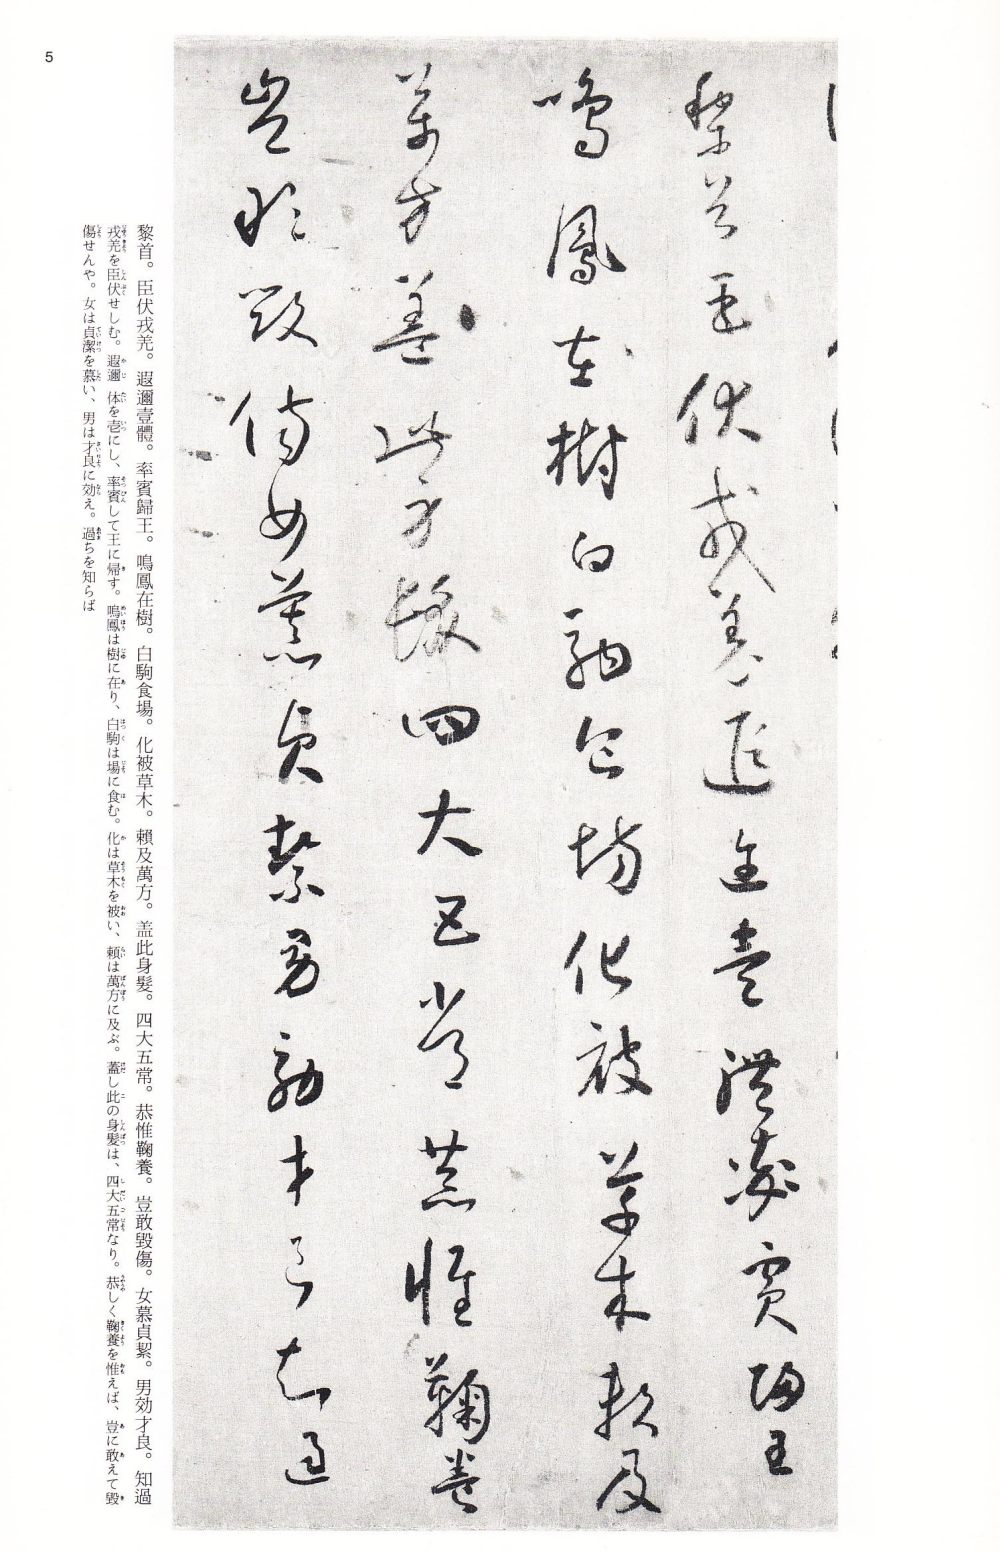 黎首臣伏戎羌遐迩壹體率賓歸王
鳴鳳在樹白駒食場化被草木賴及
萬方蓋此身髮四大五常恭惟鞠養
豈敢毀傷女慕貞絜男効才良知過
黎首。臣伏戎羌。遐邇壹體。率賓歸王。鳴鳳在樹。白駒食場。化被草木。賴及萬方。盖此身髮。四大五常。恭惟鞠養。豈敢毀傷。女慕貞絜。男効才良。知過
戎羌を臣伏せしむ。遐邇体を壱にし、率賓して王に帰す。鳴鳳は樹に在り、白駒は場に食む。化は草木を被い、頼は萬方に及ぶ。蓋し此の身髮は、四大五常なり。恭しく鞠養を惟えば、豈に敢えて毀
傷せんや。女は貞潔を慕い、男は才良に効え。過ちを知らば
5